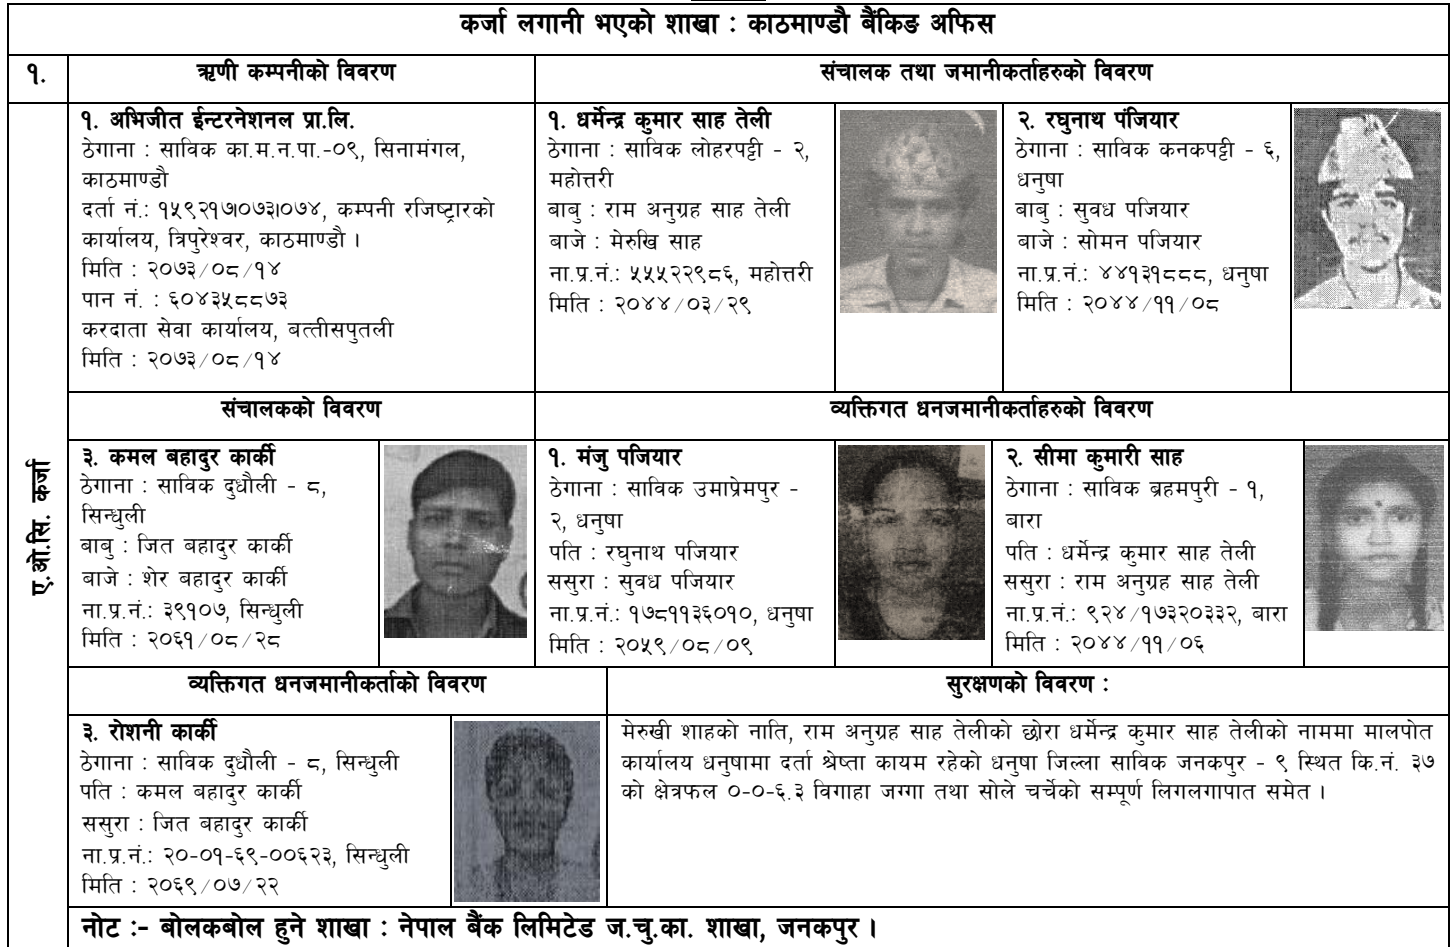 कर्जा लगानी भएको शाखा : काठमाण्डौ बैंकिङ अफिस
१.
ऋणी कम्पनीको विवरण
संचालक तथा जमानीकर्ताहरुको विवरण
ए.ओ.सि. कर्जा
१. अभिजीत ईन्टरनेशनल प्रा.लि.
ठेगाना : साविक का.म.न.पा.-०९, सिनामंगल,
काठमाण्डौ
दर्ता नं.: १५९२१७।०७३।०७४, कम्पनी रजिष्ट्रारको
कार्यालय, त्रिपुरेश्वर, काठमाण्डौ ।
मिति : २०७३/०८/१४
पान नं. : ६०४३५८८७३
करदाता सेवा कार्यालय, बत्तीसपुतली
मिति : २०७३/०८/१४
१. धर्मेन्द्र कुमार साह तेली
ठेगाना : साविक लोहरपट्टी - २,
महोत्तरी
बाबु : राम अनुग्रह साह तेली
बाजे : मेरुखि साह
ना.प्र.नं.: ५५५२२९८६, महोत्तरी
मिति : २०४४/०३/२९
२. रघुनाथ पंजियार
ठेगाना : साविक कनकपट्टी - ६,
धनुषा
बाबु : सुवध पजियार
बाजे : सोमन पजियार
ना.प्र.नं.: ४४१३१८८८, धनुषा
मिति : २०४४/११/०८
संचालकको विवरण
व्यक्तिगत धनजमानीकर्ताहरुको विवरण
३. कमल बहादुर कार्की
ठेगाना : साविक दुधौली - ८,
सिन्धुली
बाबु : जित बहादुर कार्की
बाजे : शेर बहादुर कार्की
ना.प्र.नं.: ३९१०७, सिन्धुली
मिति : २०६१/०८/२८
१. मंजु पजियार
ठेगाना : साविक उमाप्रेमपुर -
२, धनुषा
पति : रघुनाथ पजियार
ससुरा : सुवध पजियार
ना.प्र.नं.: १७८११३६०१०, धनुषा
मिति : २०५९/०८/०९
२. सीमा कुमारी साह
ठेगाना : साविक ब्रहमपुरी - १,
बारा
पति : धर्मेन्द्र कुमार साह तेली
ससुरा : राम अनुग्रह साह तेली
ना.प्र.नं.: ९२४/१७३२०३३२, बारा
मिति : २०४४/११/०६
व्यक्तिगत धनजमानीकर्ताको विवरण
सुरक्षणको विवरण :
३. रोशनी कार्की
ठेगाना : साविक दुधौली - ८, सिन्धुली
पति : कमल बहादुर कार्की
ससुरा : जित बहादुर कार्की
ना.प्र.नं.: २०-०१-६९-००६२३, सिन्धुली
मिति : २०६९/०७/२२
मेरुखी शाहको नाति, राम अनुग्रह साह तेलीको छोरा धर्मेन्द्र कुमार साह तेलीको नाममा मालपोत
कार्यालय धनुषामा दर्ता श्रेष्ता कायम रहेको धनुषा जिल्ला साविक जनकपुर - ९ स्थित कि.नं. ३७
को क्षेत्रफल ०-०-६.३ विगाहा जग्गा तथा सोले चर्चेको सम्पूर्ण लिगलगापात समेत ।
नोट :- बोलकबोल हुने शाखा : नेपाल बैंक लिमिटेड ज.चु.का. शाखा, जनकपुर ।